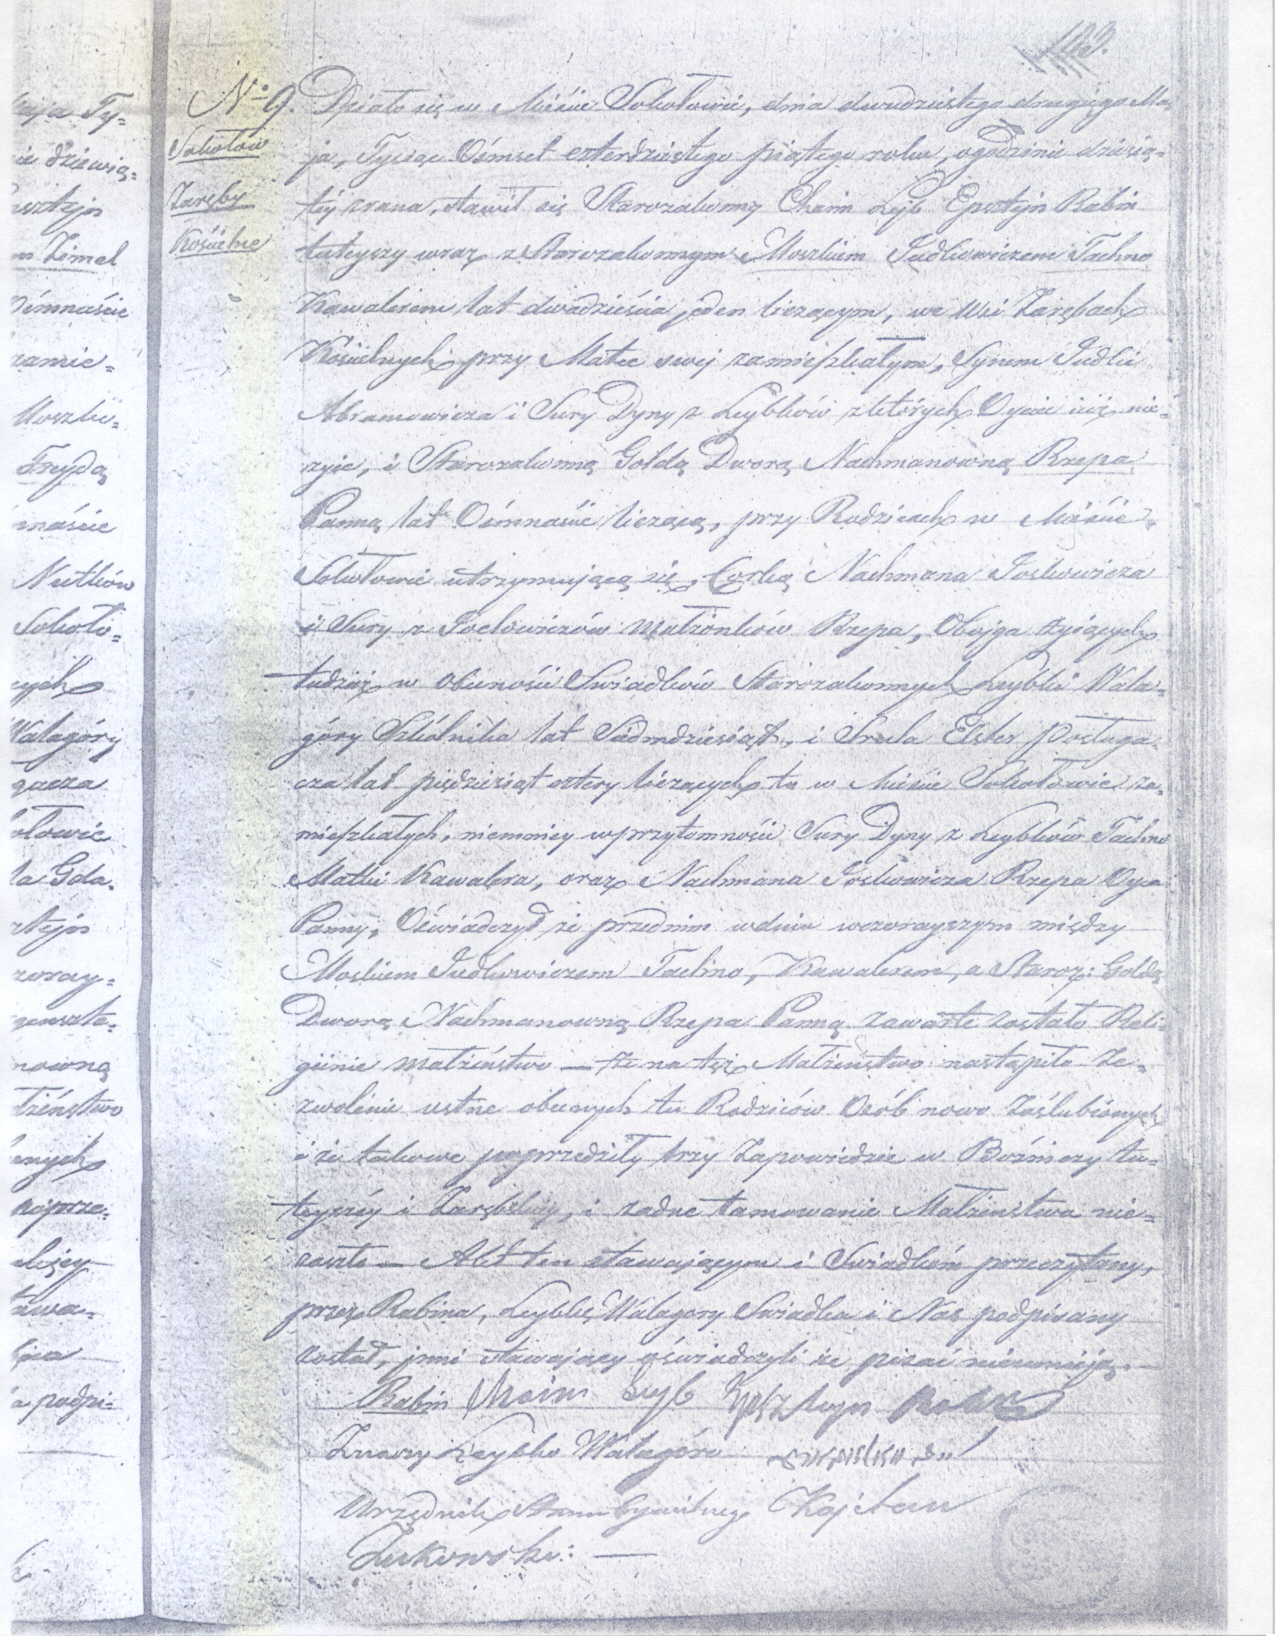 113.
N<sup>o</sup> 9.
Sokołów
Zaręby
Kościelne
Działo się w Mieście Sokołowie, dnia dwudziestego drugiego Ma-
ja, Tysiąc Ośmset czterdziestego piątego roku, o godzinie dziesią-
téy zrana, stawił się Starozakonny Chaim Leyb Epsztejn Rabin
tuteyszy wraz z Starozakonnym Moszkiem Judkowiczem Tachno
Kawalerem lat dwadzieścia jeden liczącym, we Wsi Zarębach
Kościelnych przy Matce swej zamieszkałym, Synem Judki
Abramowicza i Sury Dyny z Leybków, z których Oyciec iuż nie-
żyje, i Starozakonną Goldą Dworą Nachmanowną Rzepa
Panną lat Ośmnaście liczącą, przy Rodzicach w Mieście
Sokołowie utrzymującą się, Corką Nachmana Joskowicza
i Sury z Joskowiczów Małżonków Rzepa, Obojga żyjących
tudzież w obecności Swiadków Starozakonnych Leybki Wała-
góry Szkólnika lat Siedmdziesiąt, i Srula Elster posługa-
cza lat pięćdziesiąt cztery liczących tu w Mieście Sokołowie za-
mieszkałych, niemniey w przytomności Sury Dyny z Leybków Tachno
Matki Kawalera, oraz Nachmana Joskowicza Rzepa Oyca
Panny, Oświadczył że przed nim w dniu wczorayszym między
Moszkiem Judkowiczem Tachno, Kawalerem, a Staroz: Goldą
Dworą Nachmanowną Rzepa Panną zawarte zostało Reli-
gijnie małżeństwo — że na też Małżeństwo nastąpiło Ze-
zwolenie ustne obecnych tu Rodziców Osób nowo zaślubionych
i że takowe poprzedziły trzy Zapowiedzie w Bóżnicy tu-
teyszéy i Zarębskiey, i żadne tamowanie Małżeństwa nie-
zaszło — Akt ten stawającym i Swiadkóm przeczytany,
przez Rabina, Leybkę Wałagóry Swiadka i Nas podpisany
został, jnni stawający oświadczyli że pisać nieumieją.
Rabin Chaim Leyb Epsztejn Rabin
Znaczy Leybko Wałagóra
Urzędnik Stanu Cywilnego Kajetan
Żukowski: —